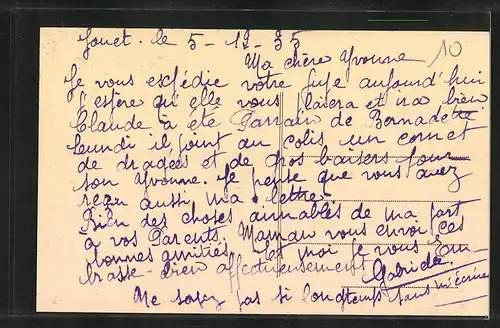 Jouet. le 5-12-35
10
Ma chère Yvonne
Je vous expédie votre jupe aujourd'hui
J'espère qu'elle vous plaira et ira bien
Claude à été Parrain de Bernadette
Lundi il joint au colis un cornet
de dragées et de gros baisers pour
son Yvonne. Je pense que vous avez
reçu aussi ma lettre.
Bien des choses aimables de ma part
à vos Parents. Maman vous envoi ces
bonnes amitiés et moi je vous Em-
brasse bien affectueusement
Gabrielle
Ne soyez pas si longtemps sans m'écrire